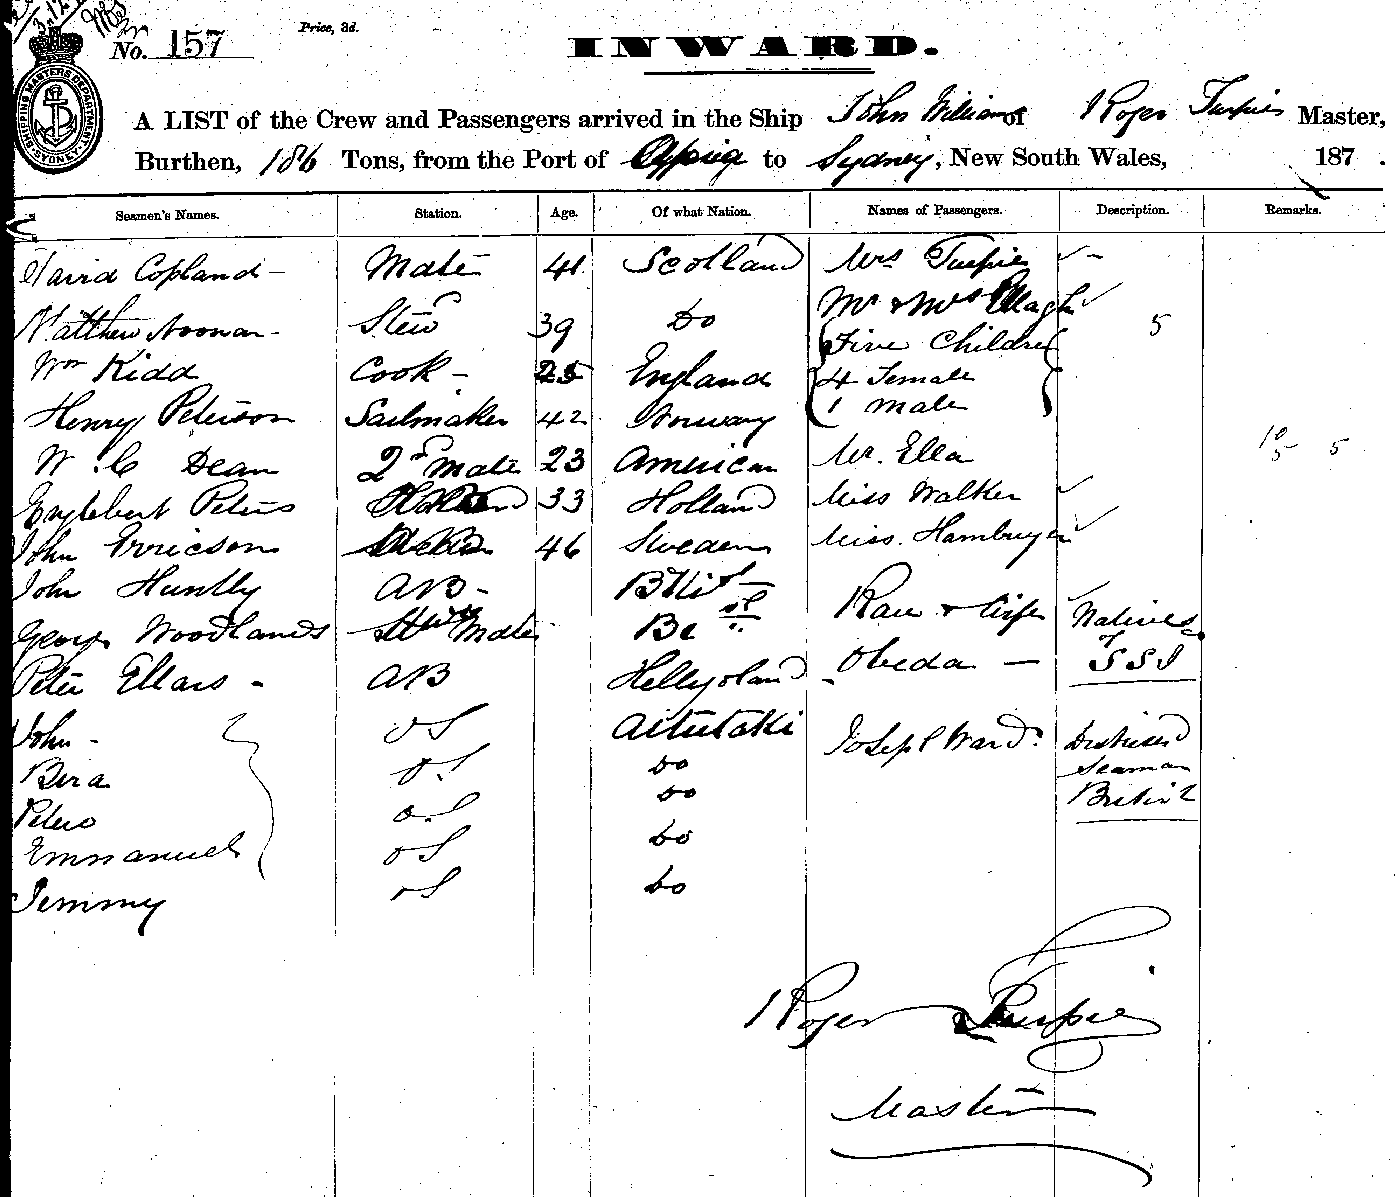 No. 157
Price, 3d.
INWARD.
SHIPPING MASTERS DEPARTMENT SYDNEY
A LIST of the Crew and Passengers arrived in the Ship John Williams of Roger Turpie Master,
Burthen, 186 Tons, from the Port of to Sydney, New South Wales, 187 .
Seamen's Names. Station. Age. Of what Nation. Names of Passengers. Description. Remarks.
David Copland - Mate 41 Scotland Mrs Turpie
Mr & Mrs
Matthew Noonan - Stew 39 Do Five Children 5
Wm Kidd Cook - 25 England 4 Female
Henry Peterson Sailmaker 42 Norway 1 Male
W. C Dean 2nd Mate 23 American Mr. Ella 10 5 5
Englebert Peters 33 Holland Miss Walker
John Erricson 46 Sweden Miss.
John Huntly AB -
George Woodlands Mate & Wife Natives
of
Peter Ellars - AB Obeda — SSI
John - OS Aitutaki Joseph Ward. Distressed
Bera O.S Do Seaman
Peter O.S Do British
Emmanuel OS Do
Jemmy OS Do
Roger Turpie
Master